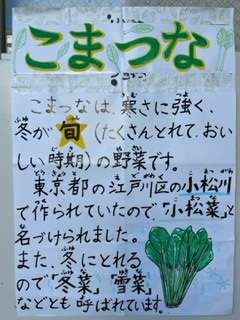 こまつな
こまつなは、寒さに強く、
冬が旬(たくさんとれて、おい
しい時期)の野菜です。
東京都の江戸川区の小松川
で作られていたので「小松菜」と
名づけられました。
また、冬にとれる
ので「冬菜」「雪菜」
などとも呼ばれています。